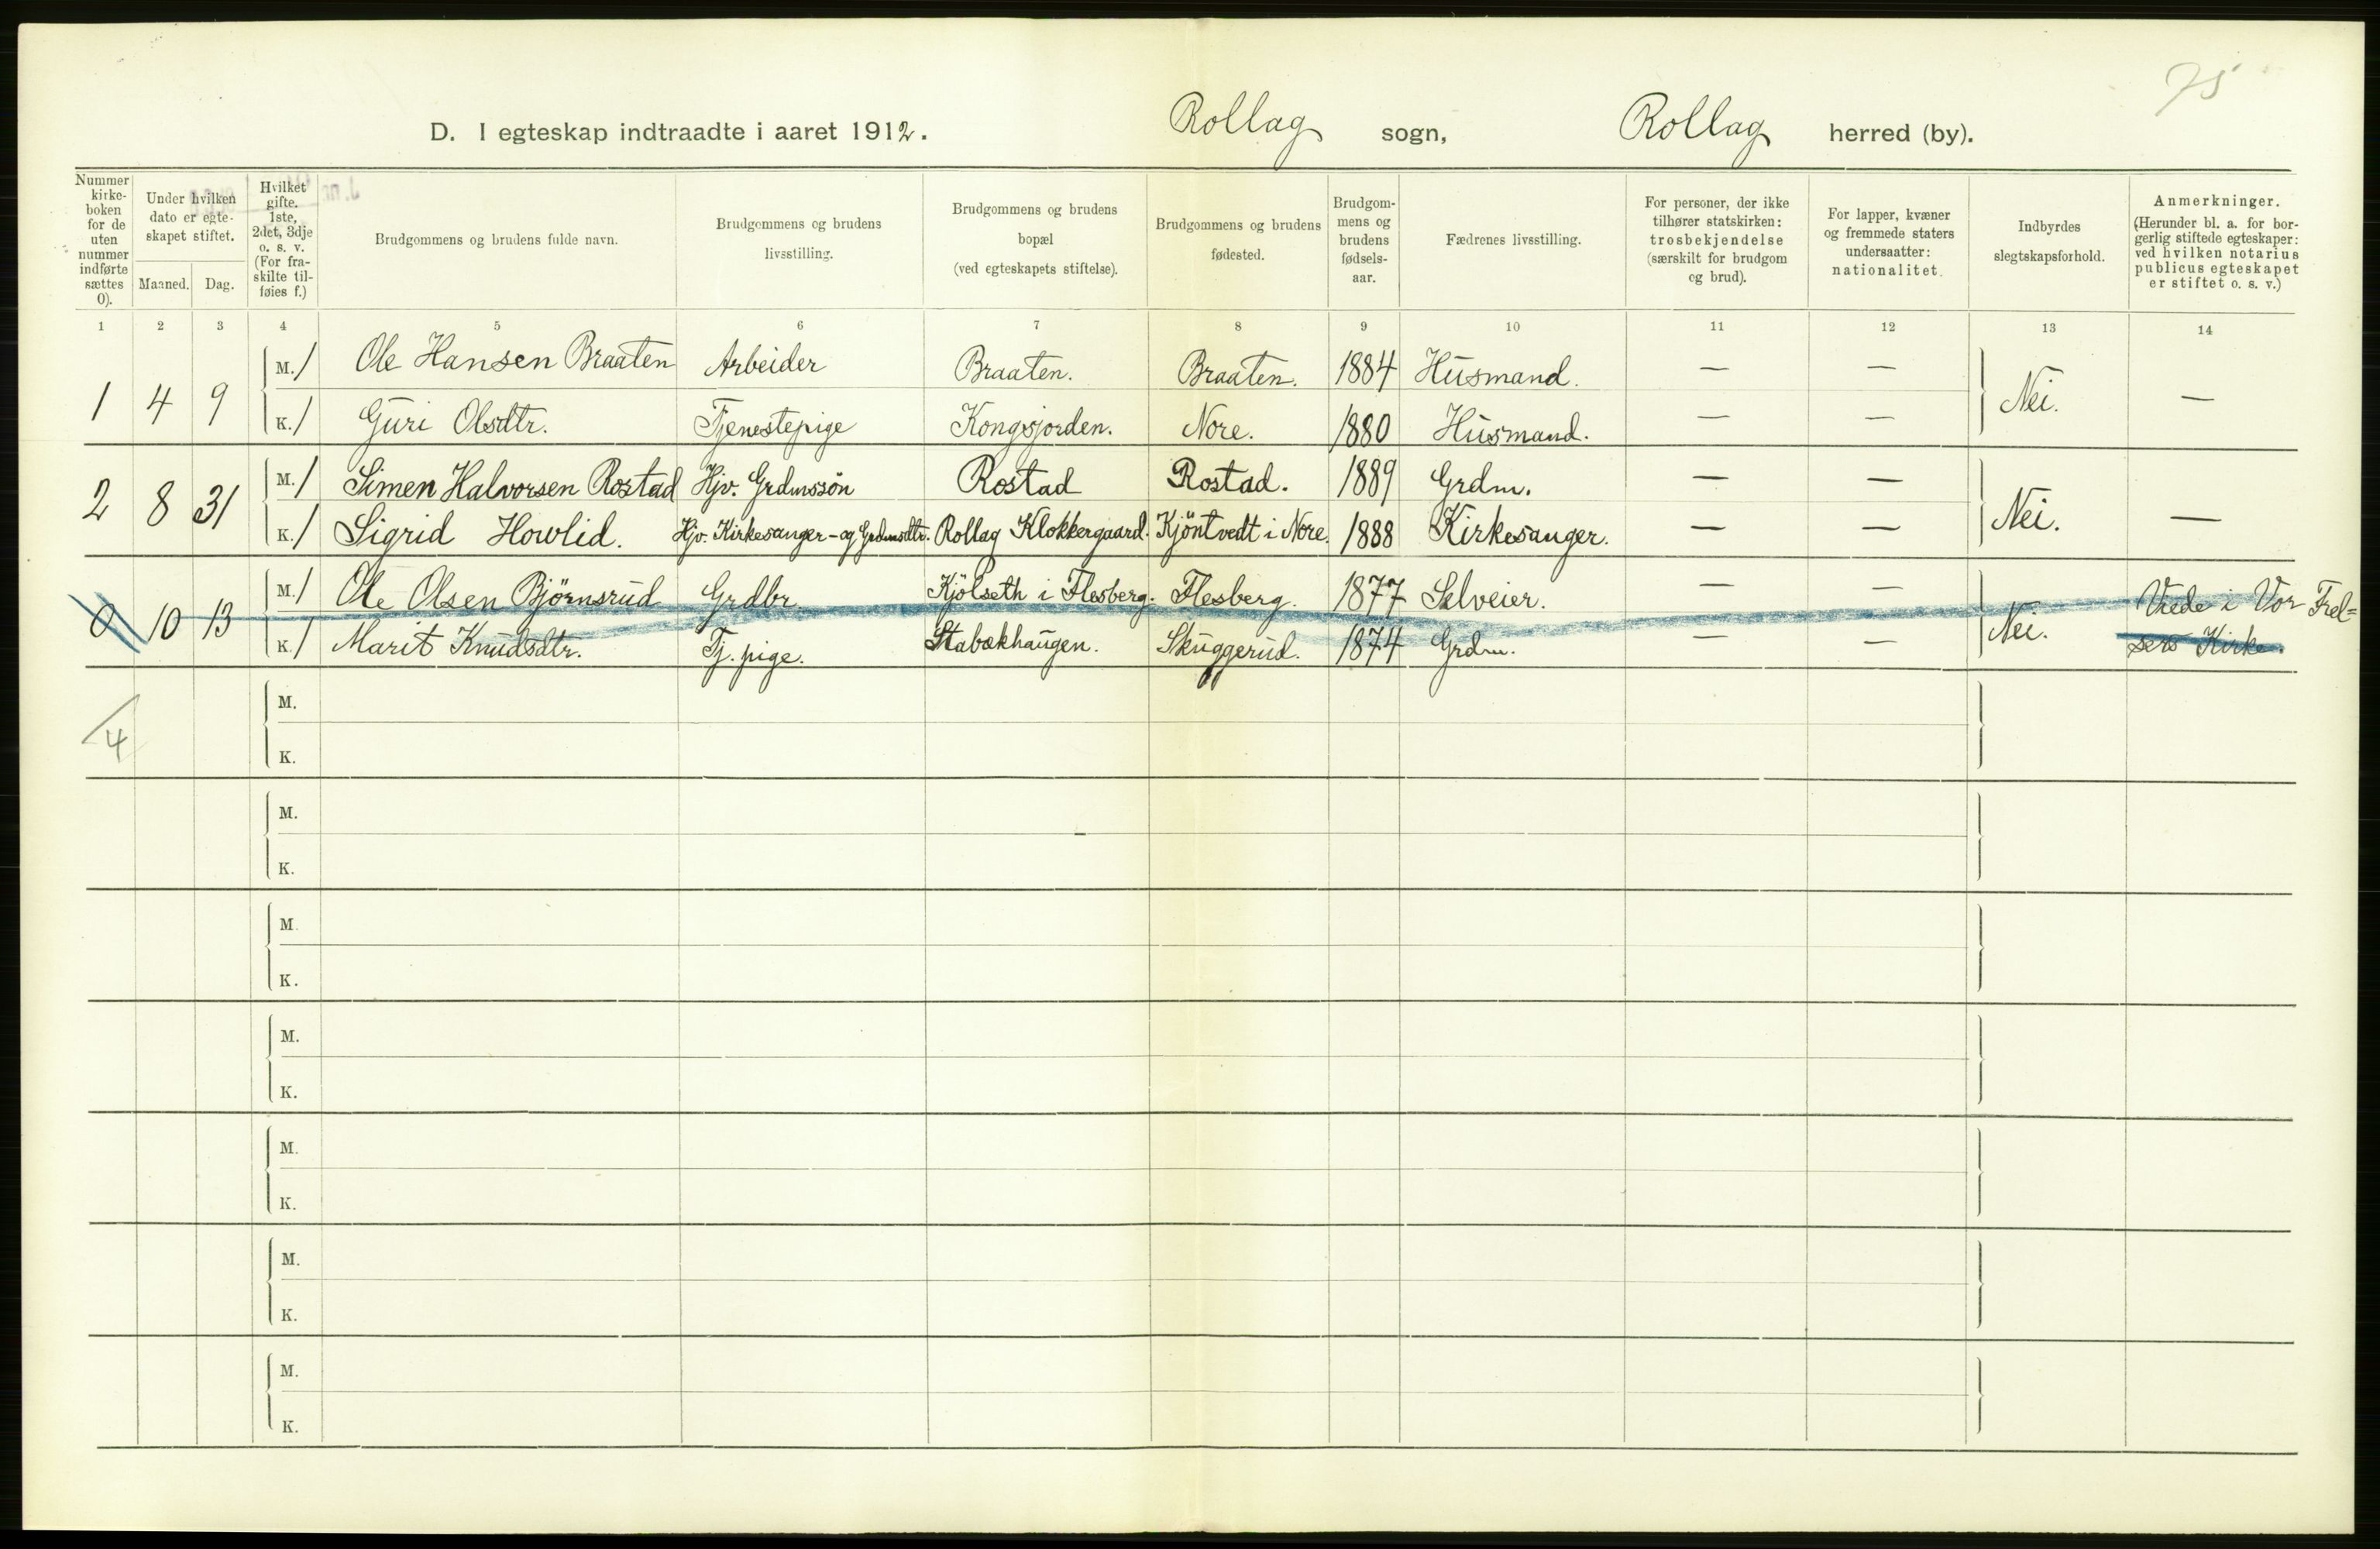 75
D. I egteskap indtraadte i aaret 1912. Rollag sogn, Rollag herred (by).
Nummer kirkeboken for de uten nummer indførte sættes 0).
Under hvilken dato er egteskapet stiftet.
Maaned. Dag.
Hvilket gifte. 1ste, 2det, 3dje o. s. v. (For fraskilte tilføies f.)
Brudgommens og brudens fulde navn.
Brudgommens og brudens livsstilling.
Brudgommens og brudens bopæl (ved egteskapets stiftelse).
Brudgommens og brudens fødested.
Brudgommens og brudens fødselsaar.
Fædrenes livsstilling.
For personer, der ikke tilhører statskirken: trosbekjendelse (særskilt for brudgom og brud).
For lapper, kvæner og fremmede staters undersaatter: nationalitet.
Indbyrdes slegtskapsforhold.
Anmerkninger. (Herunder bl. a. for borgerlig stiftede egteskaper: ved hvilken notarius publicus egteskapet er stiftet o. s. v.)
1 2 3 4 5 6 7 8 9 10 11 12 13 14
1 4 9 M. 1 Ole Hansen Braaten Arbeider Braaten. Braaten. 1884 Husmand. — — Nei. —
K. 1 Guri Olsdtr. Tjenestepige Kongsjorden. Nore. 1880 Husmand. — —
2 8 31 M. 1 Simen Halvorsen Rostad Hjv. Grdmssön Rostad Rostad. 1889 Grdm. — — Nei. —
K. 1 Sigrid Howlid. Hjv. Kirkesanger- og Grdmsdtr. Rollag Klokkergaard. Kjöntvedt i Nore. 1888 Kirkesanger. — —
0 10 13 M. 1 Ole Olsen Bjørnsrud Grdbr. Kjölseth i Flesberg. Flesberg. 1877 Selveier. — — Nei. Viede i Vor Frel=
K. 1 Marit Knudsdtr. Tj. pige. Stabækhaugen. Skuggerud. 1874 Grdm. — — sers Kirke.
4
M.
K.
M.
K.
M.
K.
M.
K.
M.
K.
M.
K.
M.
K.